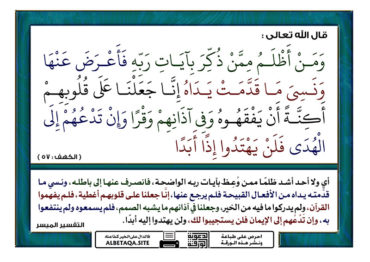 قال الله تعالى :
وَمَنْ أَظْلَمُ مِمَّنْ ذُكِّرَ بِآيَاتِ رَبِّهِ فَأَعْرَضَ عَنْهَا
وَنَسِيَ مَا قَدَّمَتْ يَدَاهُ إِنَّا جَعَلْنَا عَلَى قُلُوبِهِمْ
أَكِنَّةً أَنْ يَفْقَهُوهُ وَفِي آذَانِهِمْ وَقْرًا وَإِنْ تَدْعُهُمْ إِلَى
الْهُدَى فَلَنْ يَهْتَدُوا إِذًا أَبَدًا
( الكهف : ٥٧ )
أي ولا أحد أشد ظلمًا ممن وُعِظ بآيات ربه الواضحة، فانصرف عنها إلى باطله، ونسي ما
قدَّمته يداه من الأفعال القبيحة فلم يرجع عنها، إنَّا جعلنا على قلوبهم أغطية، فلم يفهموا
القرآن، ولم يدركوا ما فيه من الخير، وجعلنا في آذانهم ما يشبه الصمم، فلم يسمعوه ولم ينتفعوا
به، وإن تَدْعُهم إلى الإيمان فلن يستجيبوا لك، ولن يهتدوا إليه أبدًا.
التفسير الميسر
احرص على طباعة
ونشر هذه الورقة
ALBETAQA.SITE